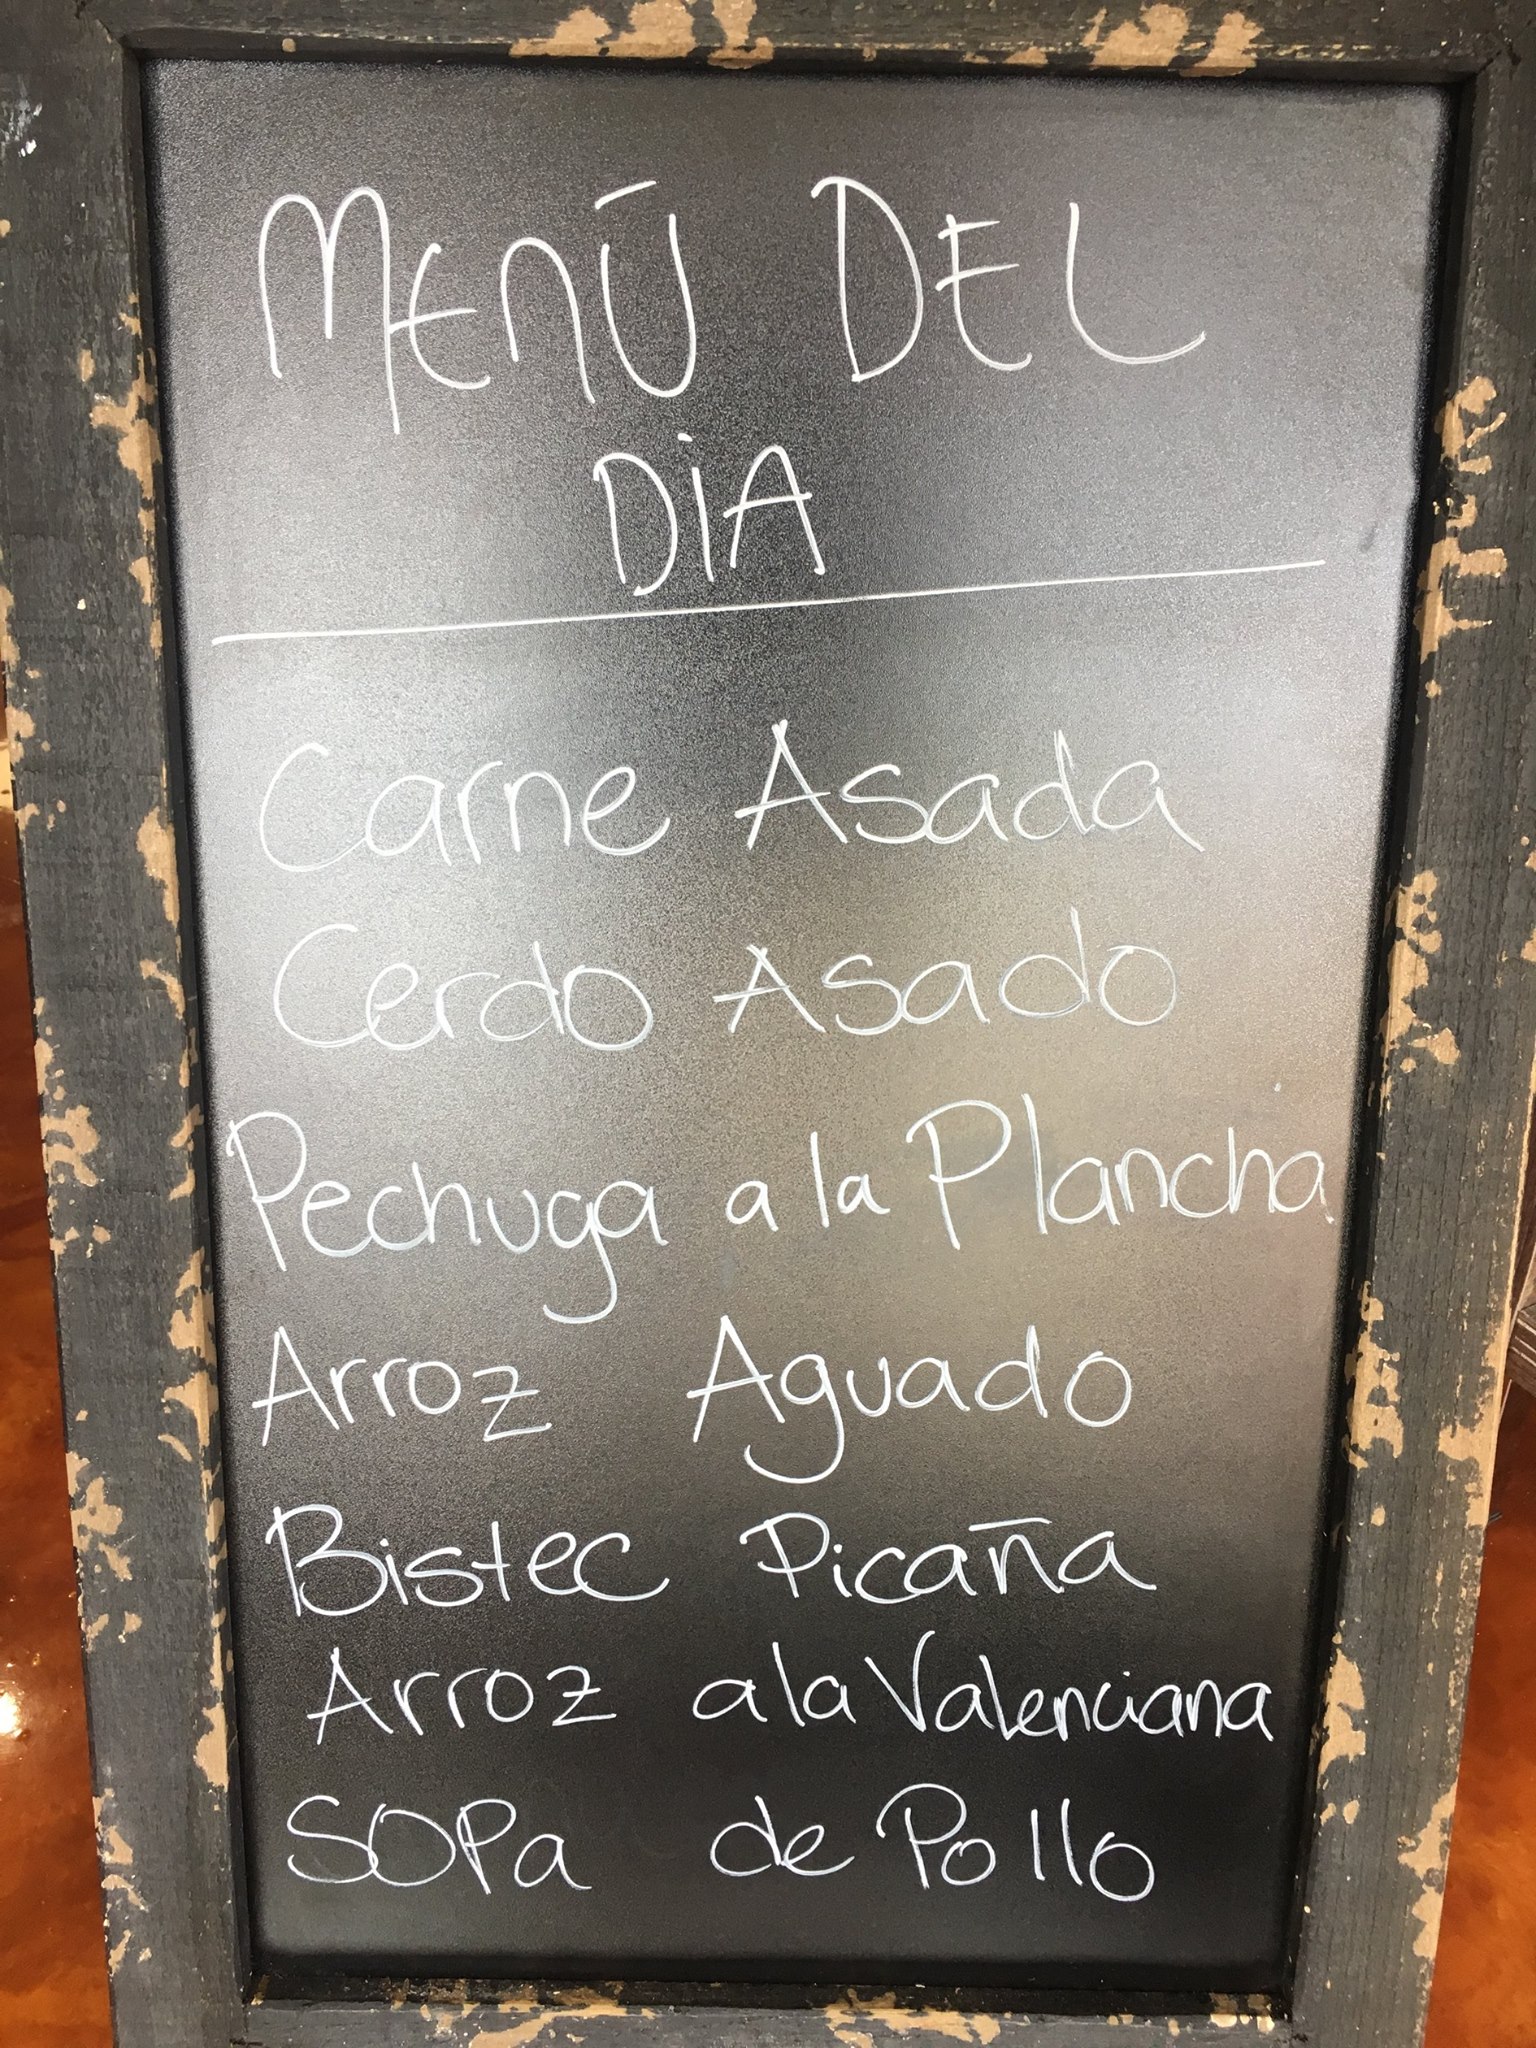 MENÚ DEL
DiA
Carne Asada
Cerdo Asado
Pechuga a la Plancha
Arroz Aguado
Bistec Picaña
Arroz a la Valenciana
SOPa de Pollo